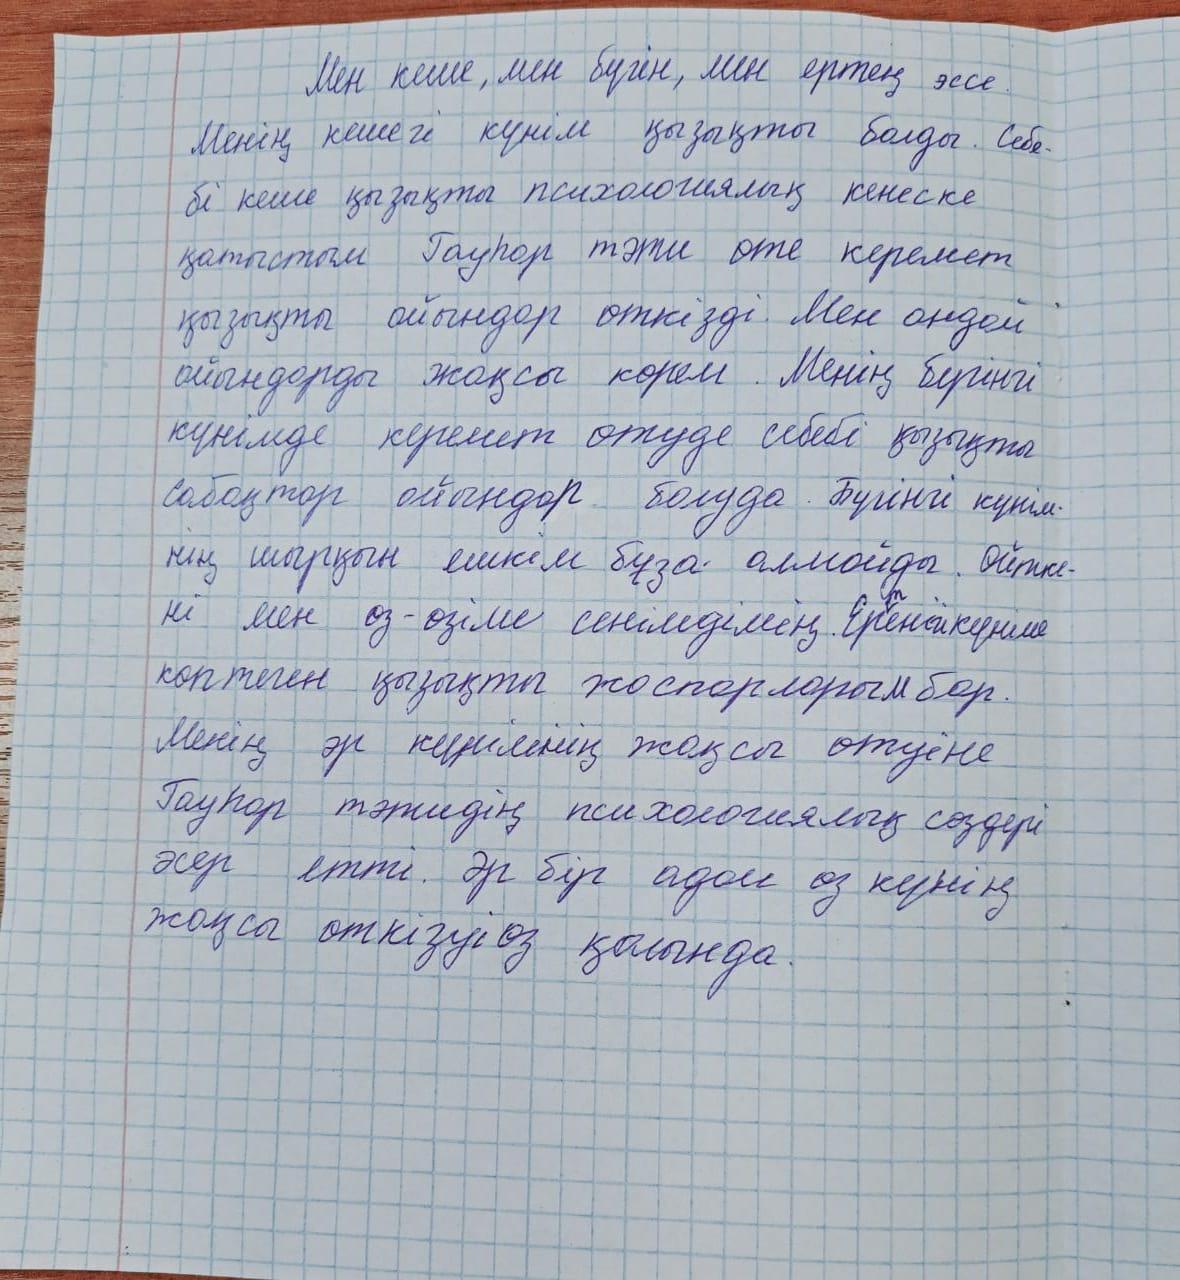 Мен кеше, мен бүгін, мен ертең эссе.
Менің кешегі күнім қызықты болды. Себе-
бі кеше қызықты психологиялық кенеске
қатыстым Гауһар тәти өте керемет
қызықты ойындар өткізді. Мен ондай
ойындарды жақсы көрем. Менің бүгінгі
күнімде керемет өтуде себебі қызықты
сабақтар ойындар болуда. Бүгінгі күнім-
нің шырқын ешкім бұза алмайды. Өйтке-
ні мен өз-өзіме сенімдімің. Ертеңгі күніме
көптеген қызықты жоспарларым бар.
Менің әр күнімнің жақсы өтуіне
Гауһар тәтидің психологиялық сөздері
әсер етті. Әр бір адам өз күнің
жақсы өткізуі өз қолында.